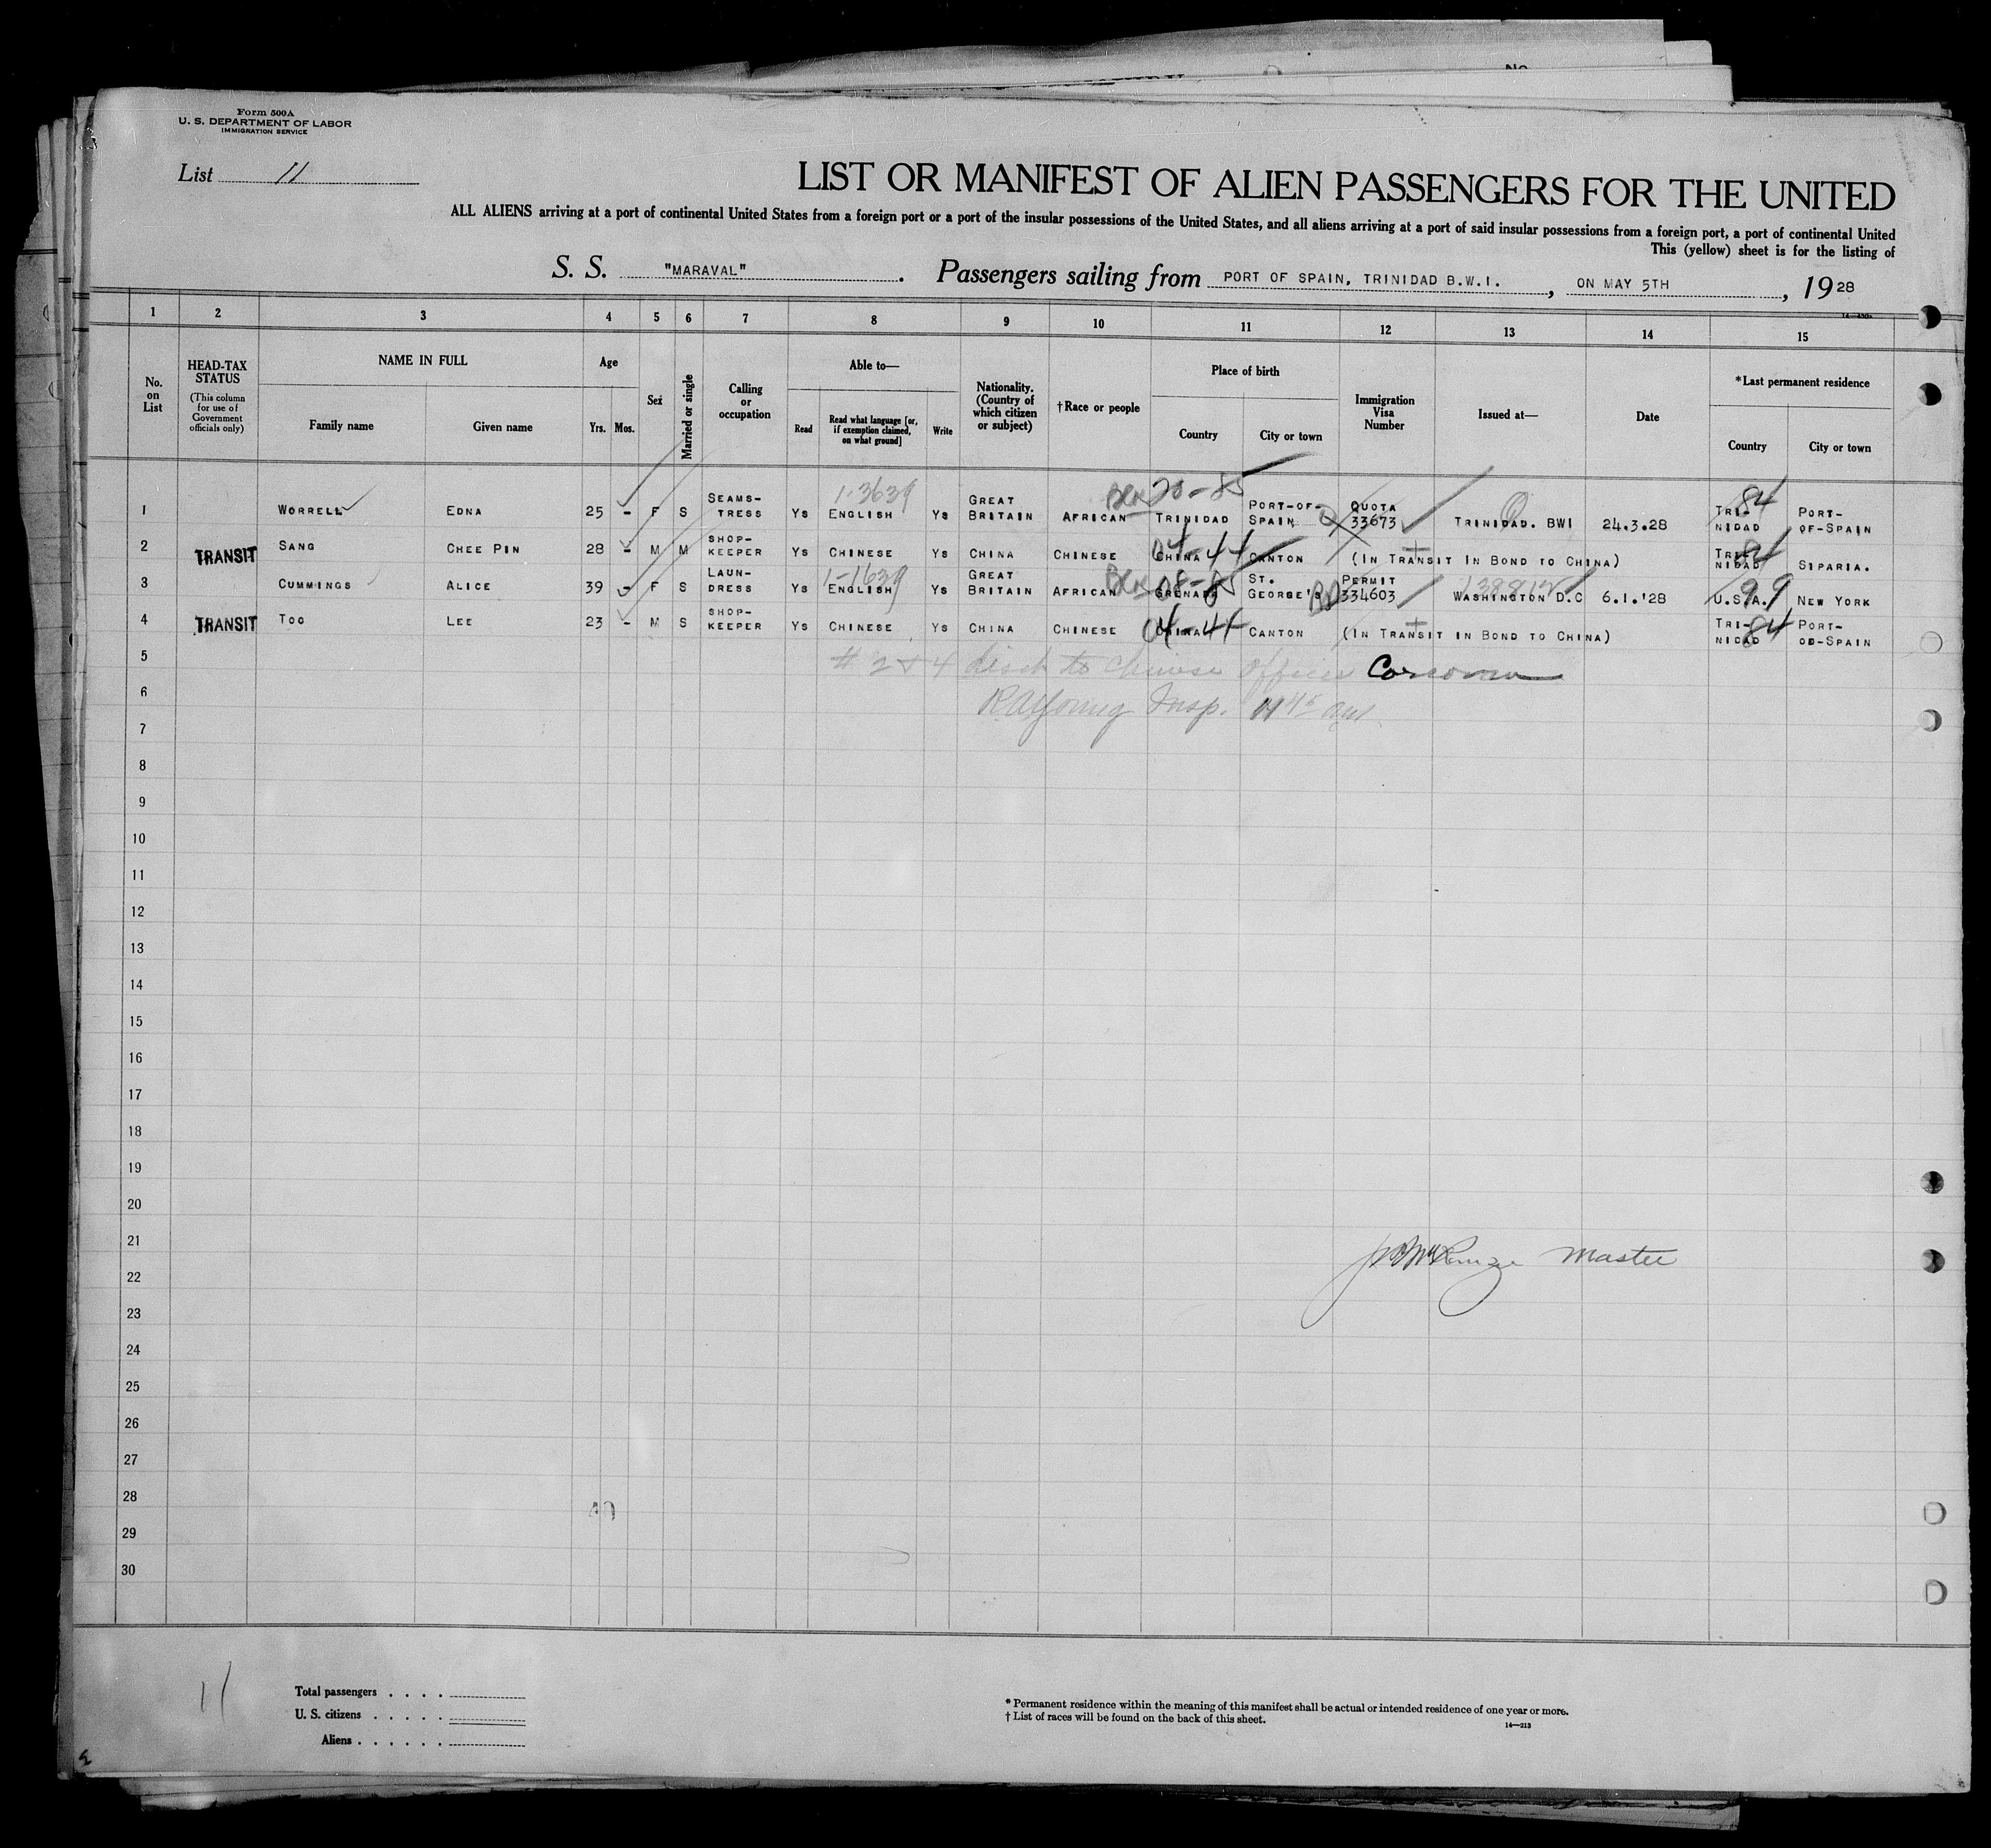 No
Form 500A
U. S. DEPARTMENT OF LABOR
IMMIGRATION SERVICE
List 11
LIST OR MANIFEST OF ALIEN PASSENGERS FOR THE UNITED
ALL ALIENS arriving at a port of continental United States from a foreign port or a port of the insular possessions of the United States, and all aliens arriving at a port of said insular possessions from a foreign port, a port of continental United
This (yellow) sheet is for the listing of
S. S. "MARAVAL". Passengers sailing from PORT OF SPAIN, TRINIDAD B.W.I., ON MAY 5TH, 1928
1 2 3 4 5 6 7 8 9 10 11 12 13 14 15
No. on List
HEAD-TAX STATUS
(This column for use of Government officials only)
NAME IN FULL
Family name Given name
Age
Yrs. Mos.
Sex
Married or single
Calling or occupation
Able to—
Read
Read what language [or, if exemption claimed, on what ground]
Write
Nationality. (Country of which citizen or subject)
†Race or people
Place of birth
Country City or town
Immigration Visa Number
Issued at—
Date
*Last permanent residence
Country City or town
1 WORRELL EDNA 25 - F S SEAMS-TRESS Ys 1-3639 ENGLISH Ys GREAT BRITAIN AFRICAN 20-85 TRINIDAD PORT-OF-SPAIN QUOTA 33673 TRINIDAD. BWI 24.3.28 84 TRI-NIDAD PORT-OF-SPAIN
2 TRANSIT SANG CHEE PIN 28 - M M SHOP-KEEPER Ys CHINESE Ys CHINA CHINESE 04-44 CHINA CANTON (IN TRANSIT IN BOND TO CHINA) 84 TRI-NIDAD SIPARIA.
3 CUMMINGS ALICE 39 - F S LAUN-DRESS Ys 1-1639 ENGLISH Ys GREAT BRITAIN AFRICAN 08-85 GRENADA ST. GEORGE'S PERMIT 334603 WASHINGTON D.C 6.1.'28 99 U.S.A. NEW YORK
4 TRANSIT TOO LEE 23 - M S SHOP-KEEPER Ys CHINESE Ys CHINA CHINESE 04-44 CHINA CANTON (IN TRANSIT IN BOND TO CHINA) 84 TRI-NIDAD PORT-OD-SPAIN
5 # 2 & 4 disch to Chinese Officer
6 Insp.
7
8
9
10
11
12
13
14
15
16
17
18
19
20
21 Master
22
23
24
25
26
27
28
29
30
11
Total passengers . . . .
U. S. citizens . . . . .
Aliens . . . . . .
* Permanent residence within the meaning of this manifest shall be actual or intended residence of one year or more.
† List of races will be found on the back of this sheet.
14—213